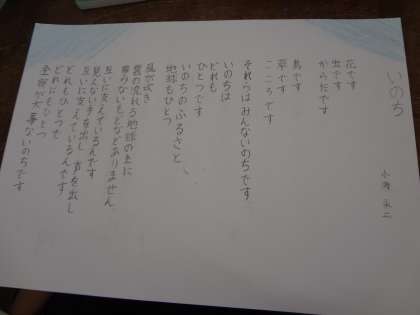 いのち
小海 永二
花です
虫です
からだです
鳥です
草です
こころです
それらはみんないのちです
いのちは
どれも
ひとつです
いのちのふるさと
地球もひとつ
風が吹き
雲の流れる地球の上に
要らないものなどありません
互いに支えているんです
見えない手を出し 声を出し
互いに支えているんです
どれもひとつで
どれにもひとつ
全部が大事ないのちです